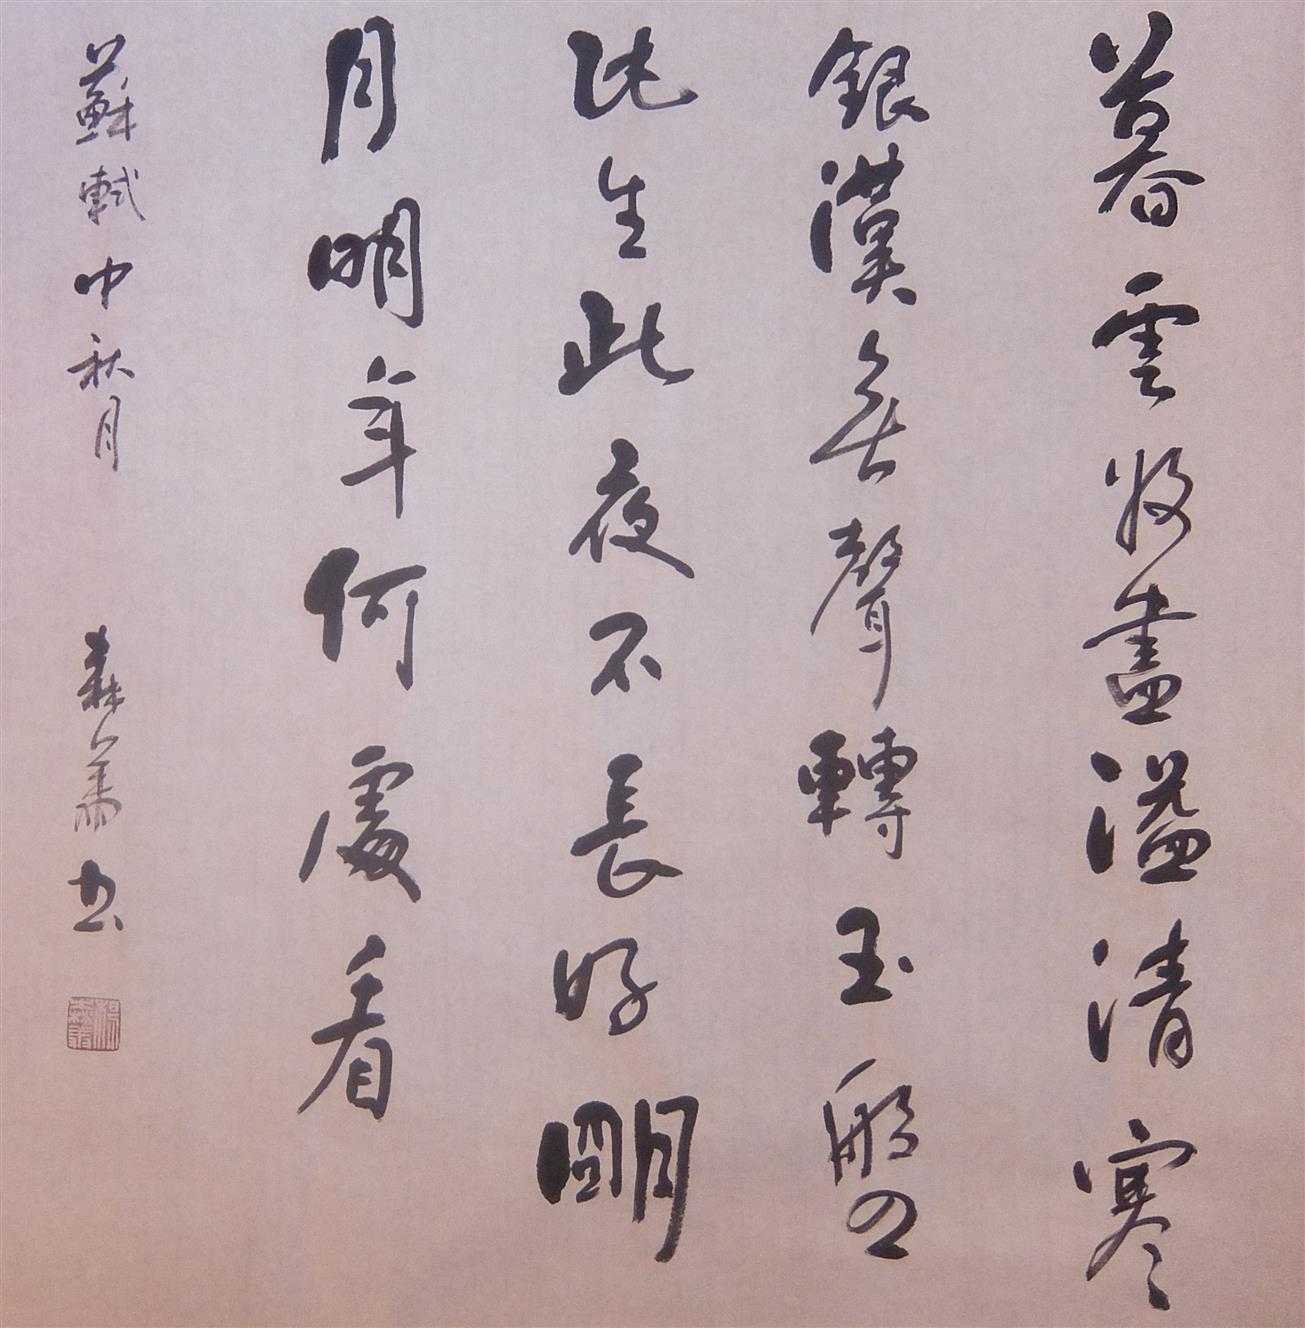 暮雲收盡溢清寒
銀漢無聲轉玉盤
此生此夜不長好明
月明年何處看
蘇軾中秋月
森 書